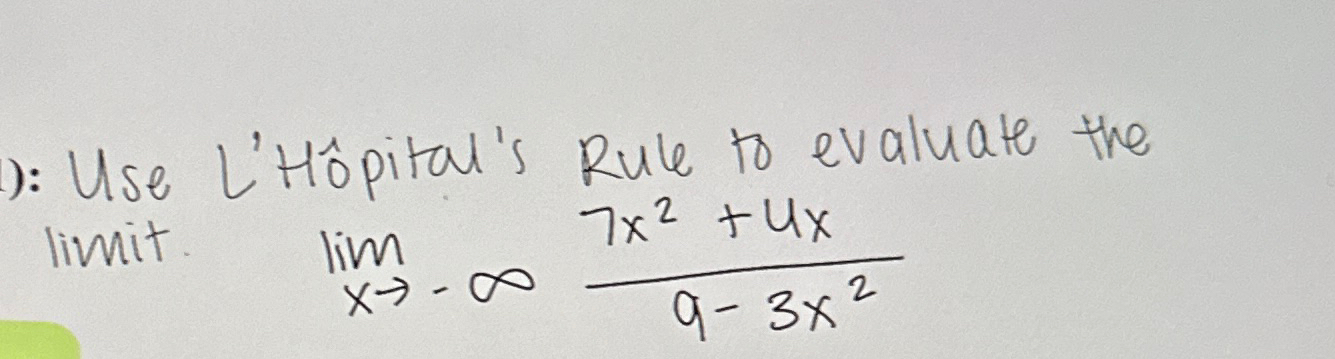 1): Use L'Hôpital's Rule to evaluate the
limit. lim x→-∞ (7x² + 4x)/(9 - 3x²)